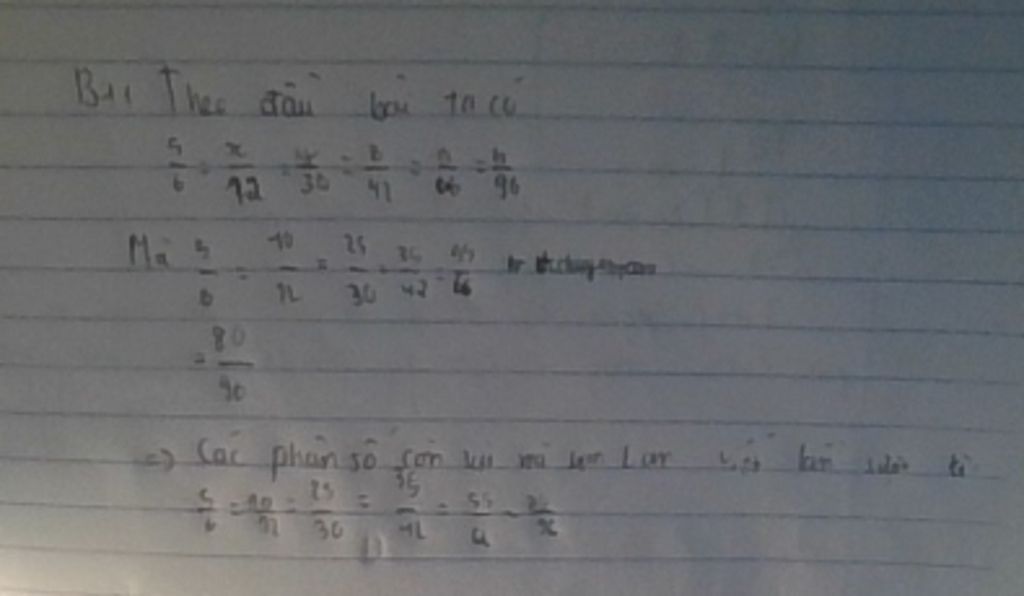 Bài Theo đầu bài ta có
5/6 = x/12 = y/30 = z/42 = a/66 = b/96
Mà 5/6 = 10/12 = 25/30 = 35/42 = 55/66
= 80/90
=> Các phân số còn lại mà Lan viết
5/6 = 10/12 = 25/30 = 35/42 = 55/